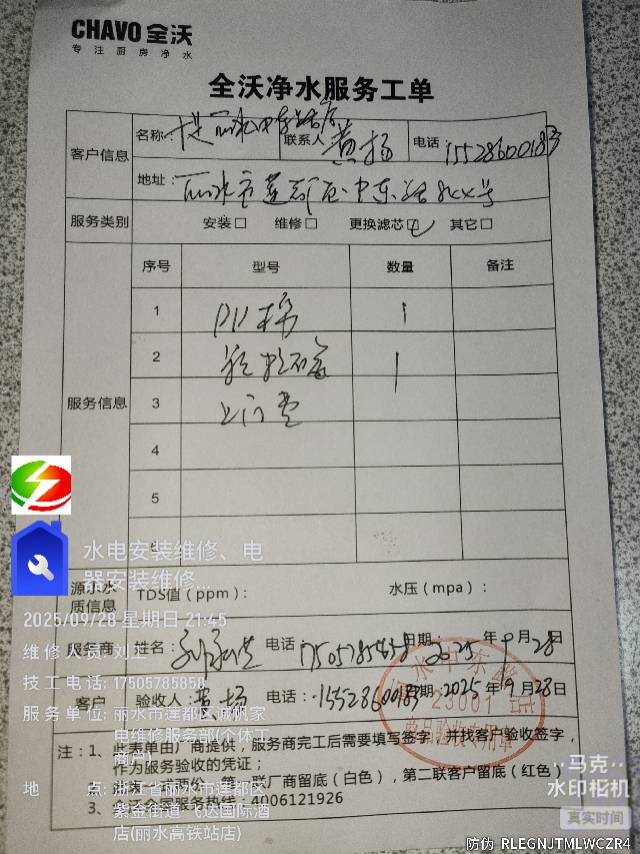 CHAVO 全沃
专注厨房净水
全沃净水服务工单
客户信息
名称:
联系人 黄扬
电话 15528600183
地址: 丽水市莲都区中东路
服务类别 安装□ 维修□ 更换滤芯☑ 其它□
服务信息
序号 型号 数量 备注
1 PP棉 1
2 1
3 上门费
4
5
水电安装维修、电
器安装维修...
源水水
质信息
TDS值(ppm): 水压(mpa):
2025/09/28 星期日 21:45
服务商 姓名: 电话: 17505785858 日期: 2025年9月28日
维修人员: 刘工
技工电话: 17505785858
客户 验收人: 黄扬 电话: 15528600183 日期: 2025年9月28日
服务单位: 丽水市莲都区诚帆家
电维修服务部(个体工
商户)
23001
商品验收专用章
注: 1、此表单由厂商提供,服务商完工后需要填写签字,并找客户验收签字,
作为服务验收的凭证;
第一联厂商留底(白色),第二联客户留底(红色)
3、全沃全国服务热线: 4006121926
地 点: 浙江省丽水市莲都区
紫金街道·飞达国际酒
店(丽水高铁站店)
马克
水印相机
真实时间
防伪 RLEGNJTMLWCZR4